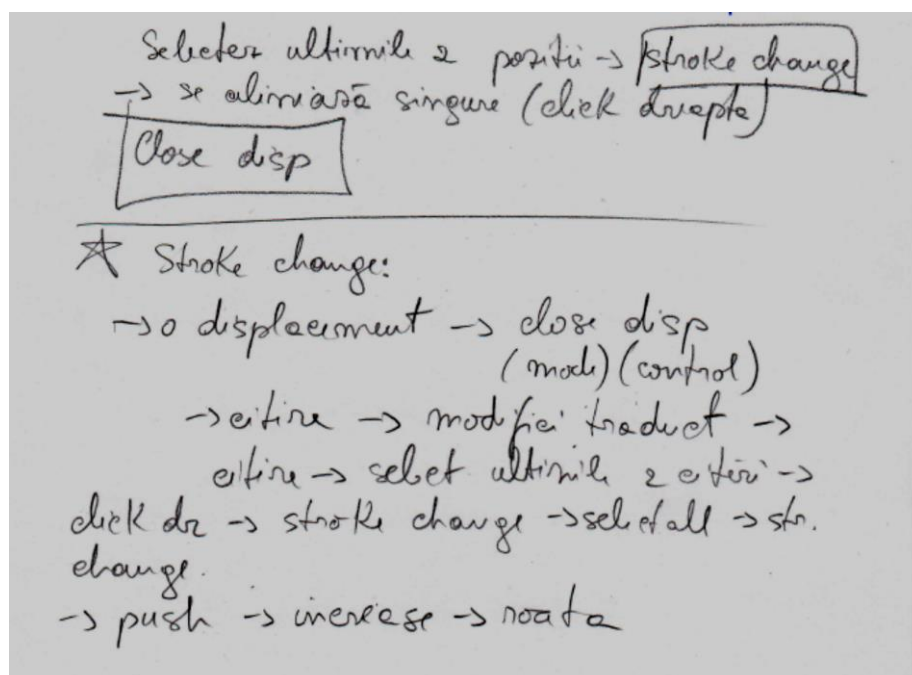 Selectez ultimile 2 poziții → stroke change
→ se aliniază singure (click dreapta)
Close disp
☆ Stroke change:
→ o displacement → close disp
(mode) (control)
→ citire → modifici traduct →
citire → select ultimile 2 citiri →
click dr → stroke change → select all → str.
change.
→ push → increase → roata